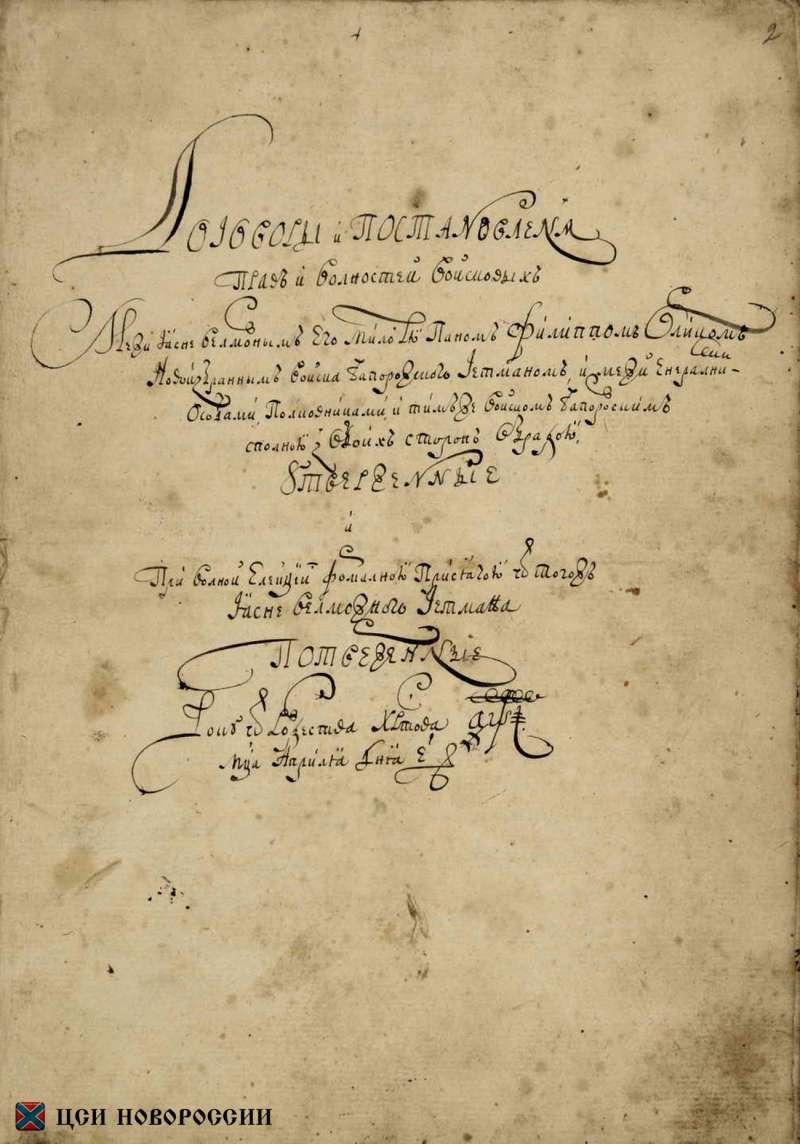 2
Договоры и Постановленя
Правъ и волностей войсковыхъ
Межи Ясне велможнымъ Его Милостю Паномъ Филиппомъ Орликомъ
Новоизбраннымъ войска Запорожского Гетманомъ, и межи Енералными
Особами Полковниками и тимже войскомъ Запорожскимъ
сполною з обоихъ сторонъ обрадою
Утверженные
и
При волной Елекции формалною Присягою ωт тогожъ
Ясне велможного Гетмана
Потверженные
Року ωт Рожества Христова ҂аѱі
Мца Априля дня е
ЦСИ НОВОРОССИИ